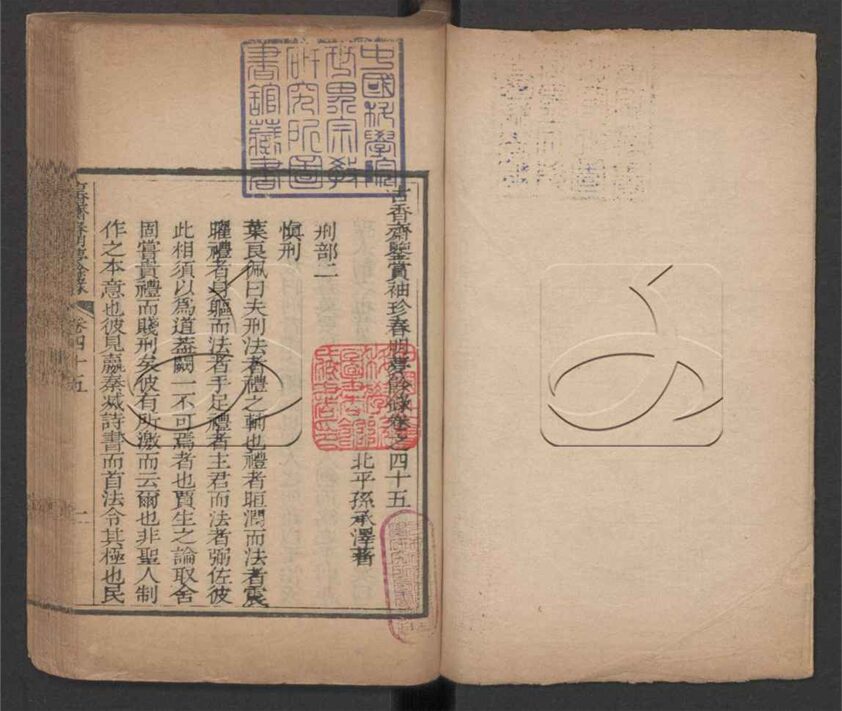 中國科學院
世界宗教
研究所圖
書館藏書
古香齋鑒賞袖珍春明夢餘錄卷之四十五
北平孫承澤著
刑部二
慎刑
葉良佩曰夫刑法者禮之輔也禮者晅潤而法者震
曜禮者身軀而法者手足禮者主君而法者弼佐彼
此相須以爲道蓋闕一不可焉者也賈生之論取舍
固嘗貴禮而賤刑矣彼有所激而云爾也非聖人制
作之本意也彼見嬴秦滅詩書而首法令其極也民
卷四十五
一